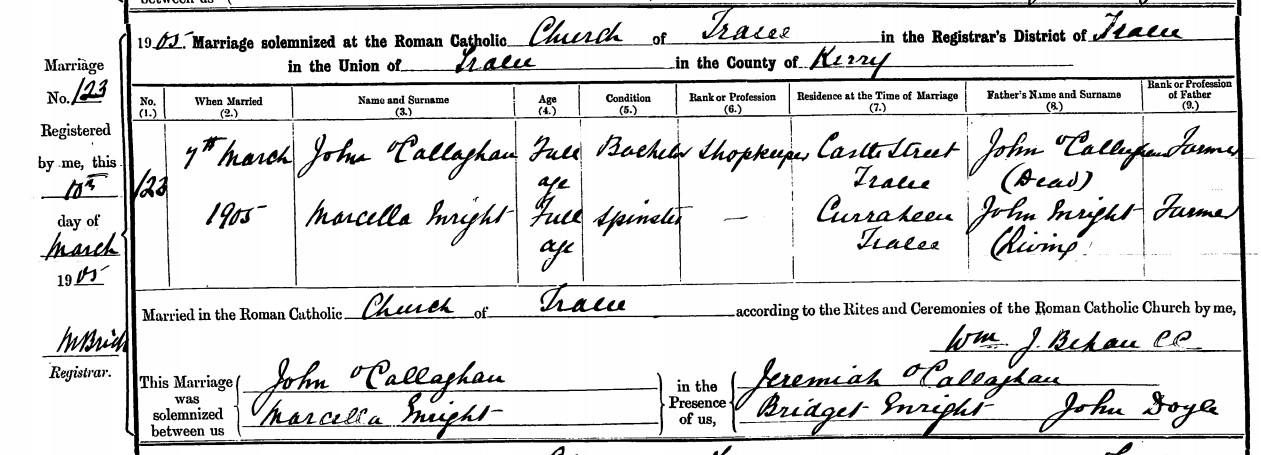 between us
1905 Marriage solemnized at the Roman Catholic Church of Tralee in the Registrar's District of Tralee
in the Union of Tralee in the County of Kerry
Marriage
No. 123
Registered
by me, this
10th
day of
March
1905
Registrar.
No. (1.) When Married (2.) Name and Surname (3.) Age (4.) Condition (5.) Rank or Profession (6.) Residence at the Time of Marriage (7.) Father's Name and Surname (8.) Rank or Profession of Father (9.)
123 7th March John O'Callaghan Full age Bachelor Shopkeeper Castle Street Tralee John O'Callaghan (Dead) Farmer
1905 Marcella Enright Full age Spinster — Curraheen Tralee John Enright (Living Farmer
Married in the Roman Catholic Church of Tralee according to the Rites and Ceremonies of the Roman Catholic Church by me,
Wm J. Behan CC
This Marriage was solemnized between us
John O'Callaghan
Marcella Enright
in the Presence of us,
Jeremiah O'Callaghan
Bridget Enright John Doyle